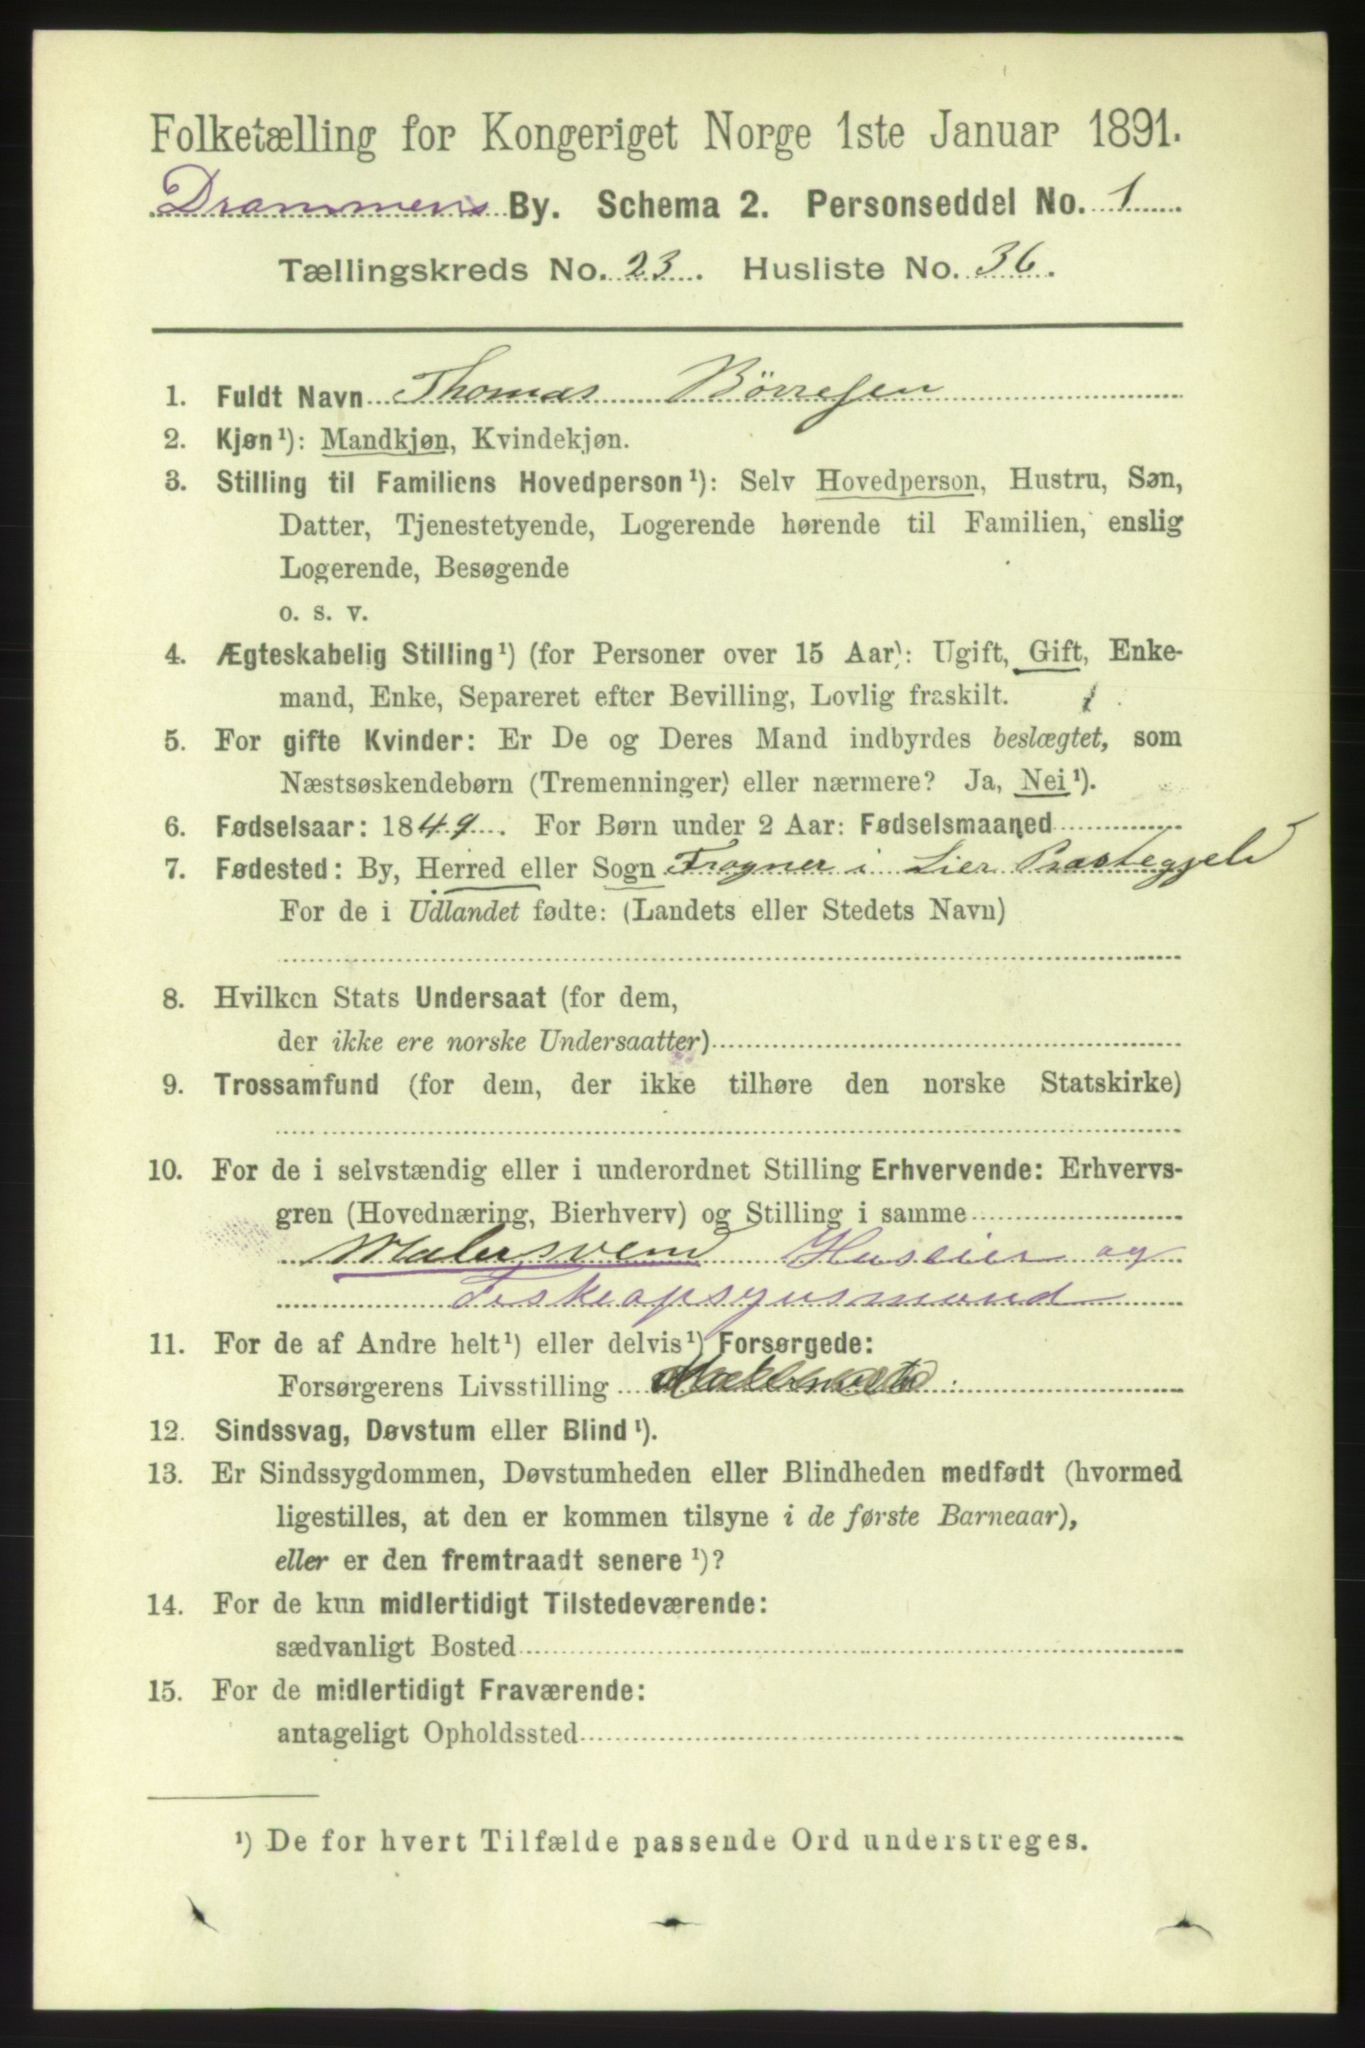 Folketælling for Kongeriget Norge 1ste Januar 1891.
Drammens By. Schema 2. Personseddel No. 1
Tællingskreds No. 23. Husliste No. 36.
1. Fuldt Navn Thomas Börresen
2. Kjøn¹): Mandkjøn, Kvindekjøn.
3. Stilling til Familiens Hovedperson¹): Selv Hovedperson, Hustru, Søn,
Datter, Tjenestetyende, Logerende hørende til Familien, enslig
Logerende, Besøgende
o. s. v.
4. Ægteskabelig Stilling¹) (for Personer over 15 Aar): Ugift, Gift, Enke-
mand, Enke, Separeret efter Bevilling, Lovlig fraskilt.
5. For gifte Kvinder: Er De og Deres Mand indbyrdes beslægtet, som
Næstsøskendebørn (Tremenninger) eller nærmere? Ja, Nei¹).
6. Fødselsaar: 1849. For Børn under 2 Aar: Fødselsmaaned
7. Fødested: By, Herred eller Sogn Frogner i Lier Præstegjeld
For de i Udlandet fødte: (Landets eller Stedets Navn)
8. Hvilken Stats Undersaat (for dem,
der ikke ere norske Undersaatter)
9. Trossamfund (for dem, der ikke tilhøre den norske Statskirke)
10. For de i selvstændig eller i underordnet Stilling Erhvervende: Erhvervs-
gren (Hovednæring, Bierhverv) og Stilling i samme
Malersvend Huseier og
Feskeopsynsmand
11. For de af Andre helt¹) eller delvis¹) Forsørgede:
Forsørgerens Livsstilling
12. Sindssvag, Døvstum eller Blind¹).
13. Er Sindssygdommen, Døvstumheden eller Blindheden medfødt (hvormed
ligestilles, at den er kommen tilsyne i de første Barneaar),
eller er den fremtraadt senere¹)?
14. For de kun midlertidigt Tilstedeværende:
sædvanligt Bosted
15. For de midlertidigt Fraværende:
antageligt Opholdssted
¹) De for hvert Tilfælde passende Ord understreges.